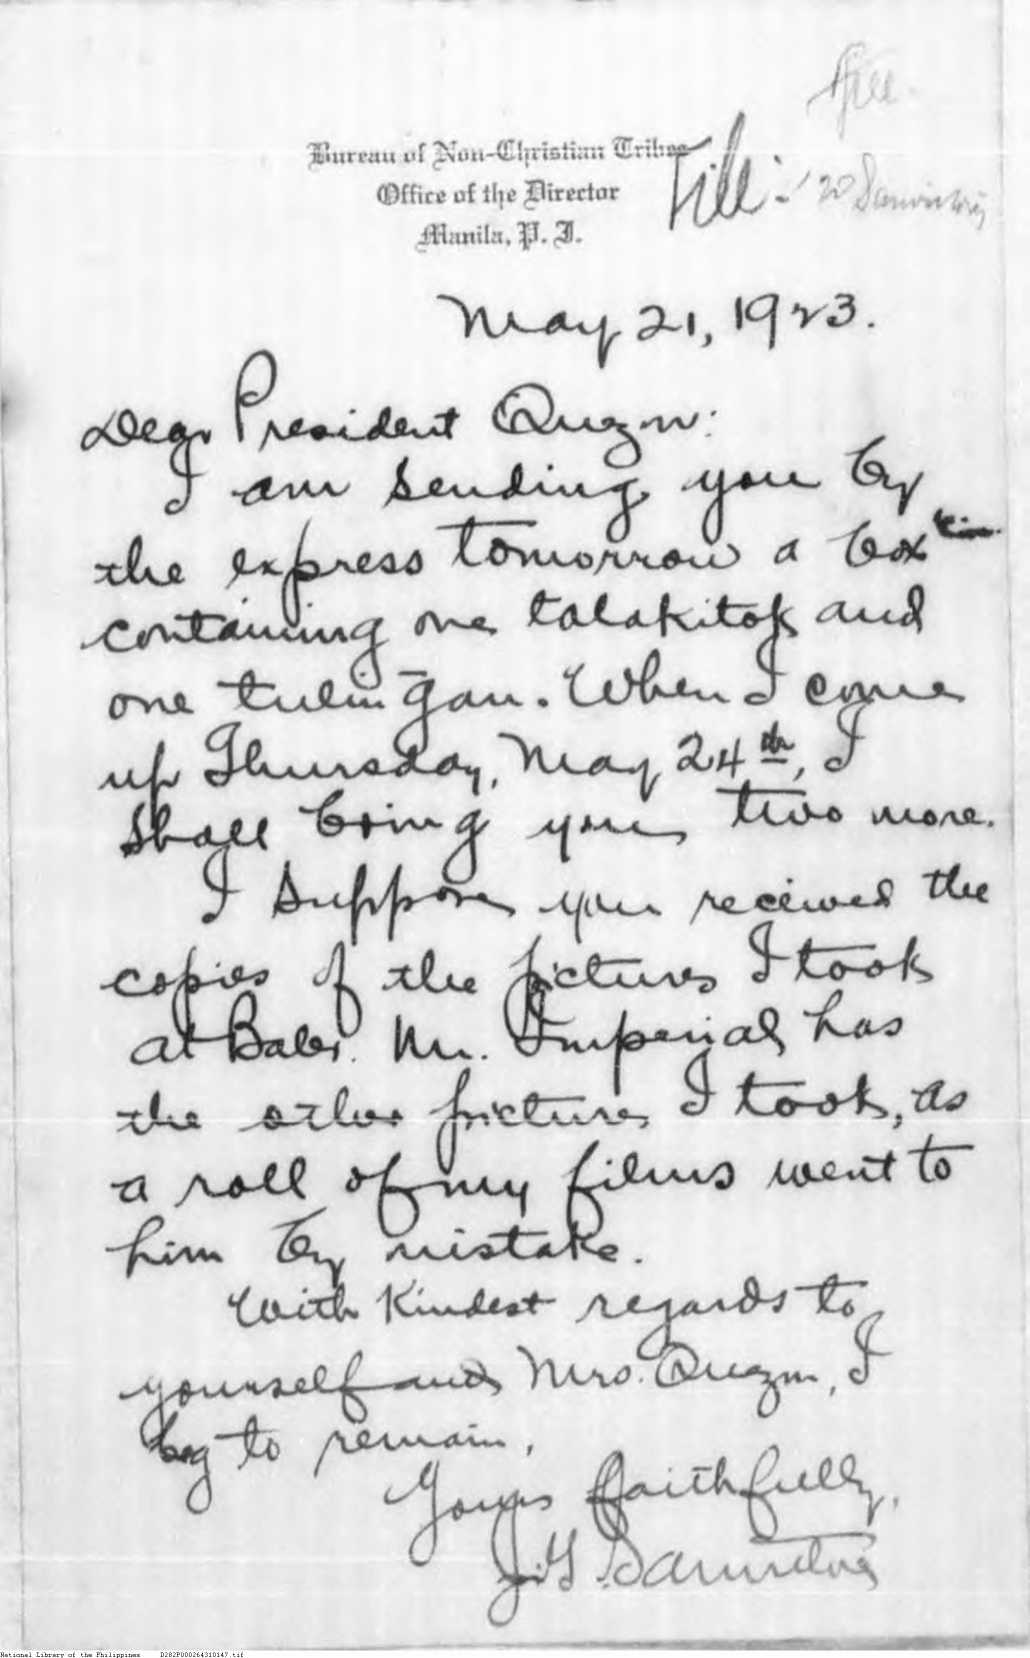 file
Bureau of Non-Christian Tribes
Office of the Director
Manila, P. I.
File
May 21, 1923.
Dear President Quezon:
I am sending you by
the express tomorrow a box
containing one talakitok and
one tulingan. When I come
up Thursday, May 24th, I
shall bring you two more.
I suppose you received the
copies of the pictures I took
at Baler. Mr. Imperial has
the other pictures I took, as
a roll of my films went to
him by mistake.
With kindest regards to
yourself and Mrs. Quezon, I
beg to remain,
Yours faithfully,
National Library of the Philippines D282P000264310147.tif